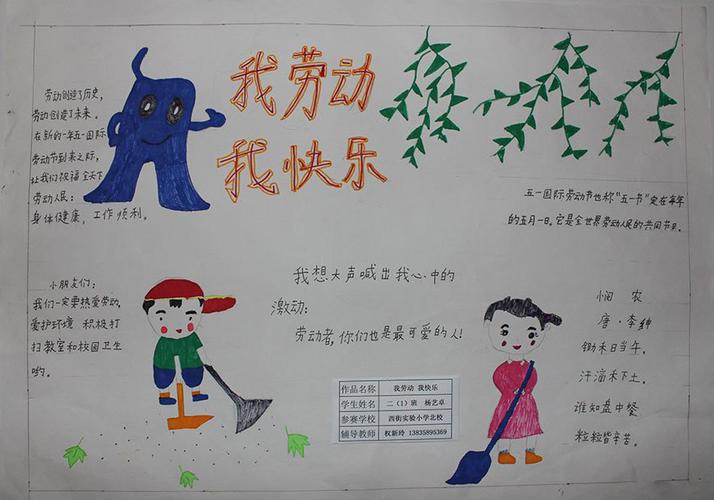 我劳动
我快乐
劳动创造了历史,
劳动创造了未来.
在新的一年五一国际
劳动节到来之际,
让我们祝福全天下
劳动人民:
身体健康,工作顺利。
五一国际劳动节也称“五一节”定在每年
的五月一日。它是全世界劳动人民的共同节日。
小朋友们:
我们一定要热爱劳动,
爱护环境 积极打
扫教室和校园卫生
哟。
我想大声喊出我心中的
激动:
劳动者,你们也是最可爱的人!
悯 农
唐·李绅
锄禾日当午。
汗滴禾下土。
谁知盘中餐
粒粒皆辛苦。
作品名称 我劳动 我快乐
学生姓名 二(1)班 杨艺卓
参赛学校 西街实验小学北校
辅导教师 权新玲 13835895369